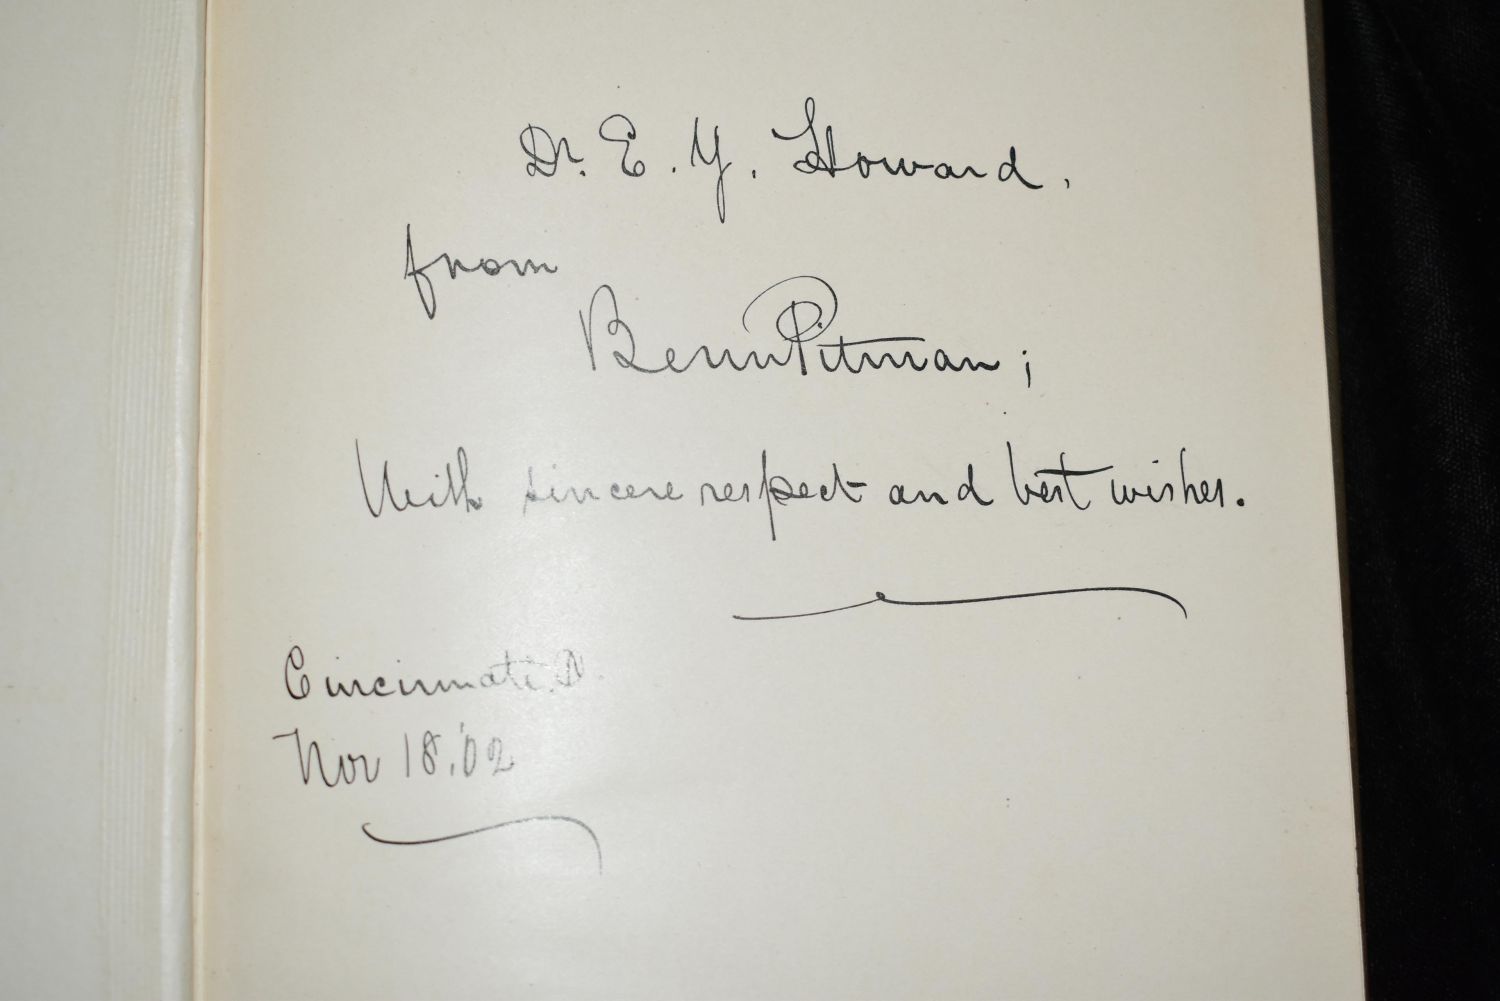 Dr. E. Y. Howard,
from
Benn Pitman;
With sincere respect and best wishes.
Cincinnati. O.
Nov 18. '02